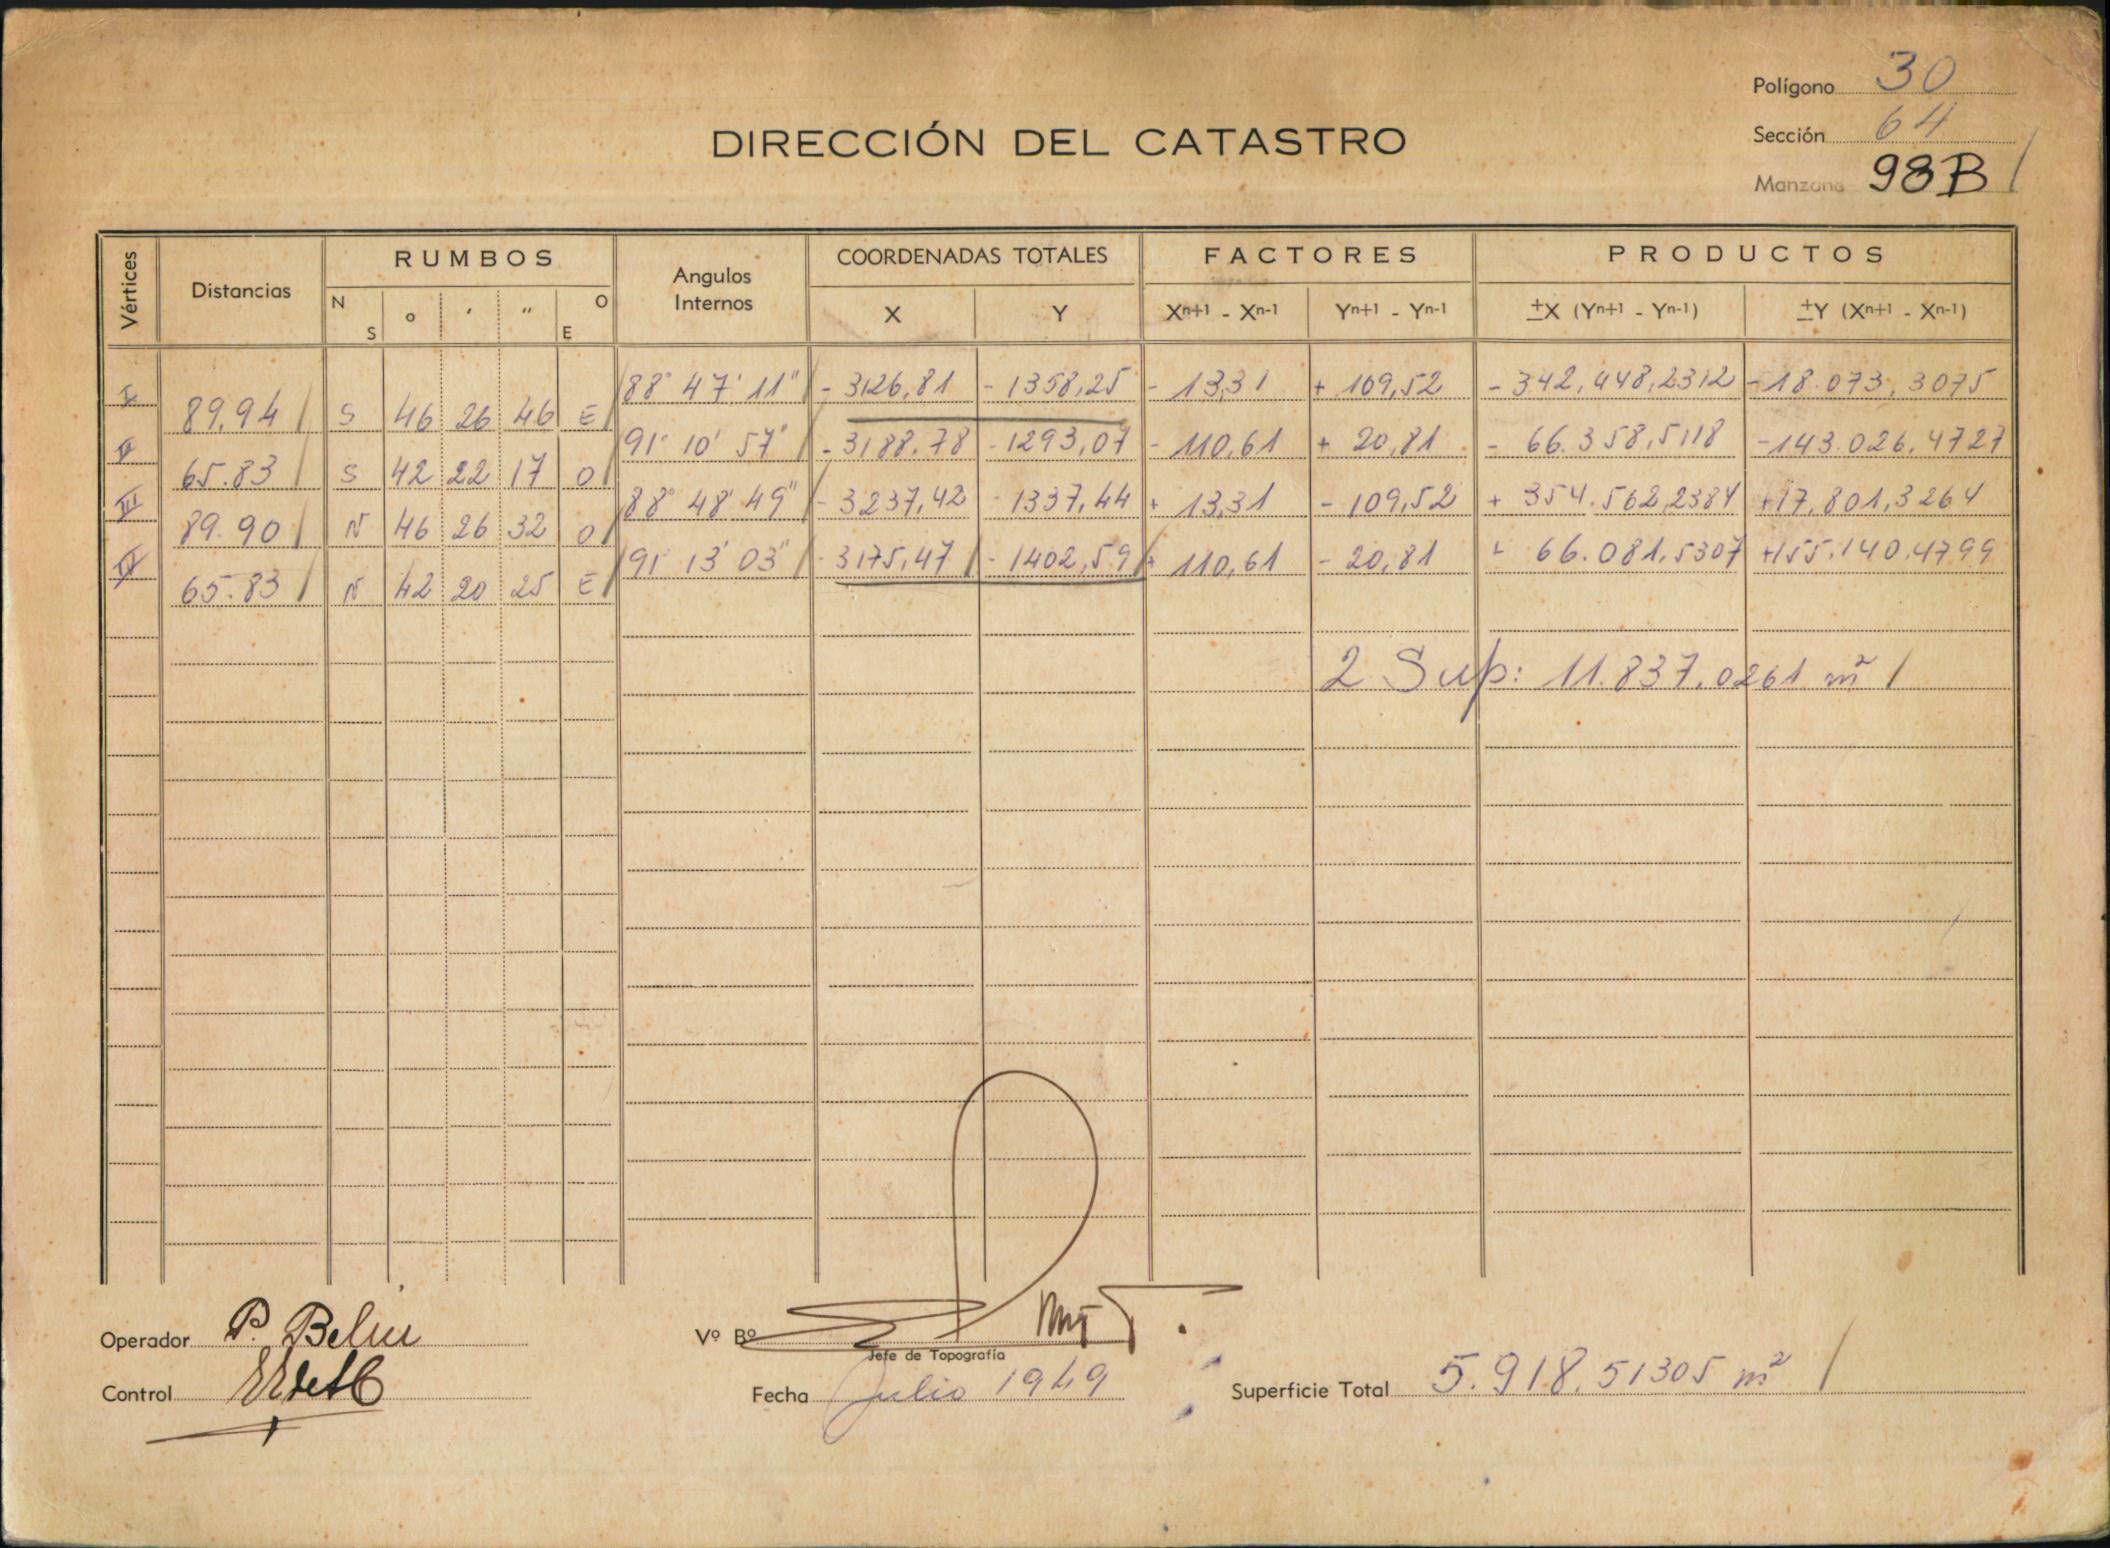 Polígono 30
Sección 64
Manzana 98B
DIRECCIÓN DEL CATASTRO
Vértices Distancias RUMBOS Angulos Internos COORDENADAS TOTALES FACTORES PRODUCTOS
N S o ′ ″ O E X Y Xn+1 - Xn-1 Yn+1 - Yn-1 ±X (Yn+1 - Yn-1) ±Y (Xn+1 - Xn-1)
I 88° 47' 11" - 3126,81 - 1358,25 - 13,31 + 109,52 - 342,448,2312 - 18.073,3075
89,94 S 46 26 46 E
II 91° 10' 57" - 3188,78 - 1293,07 - 110,61 + 20,81 - 66.358,5118 - 143.026,4727
65.83 S 42 22 17 O
III 88° 48' 49" - 3237,42 - 1337,44 + 13,31 - 109,52 + 354.562,2384 + 17,801,3264
89.90 N 46 26 32 O
IV 91° 13' 03" - 3175,47 - 1402,59 + 110,61 - 20,81 + 66.081,5307 + 155.140,4799
65.83 N 42 20 25 E
2 Sup: 11.837,0261 m²
Operador P. Belin
Vº Bº
Jefe de Topografía
Control
Fecha Julio 1949
Superficie Total 5.918,51305 m²